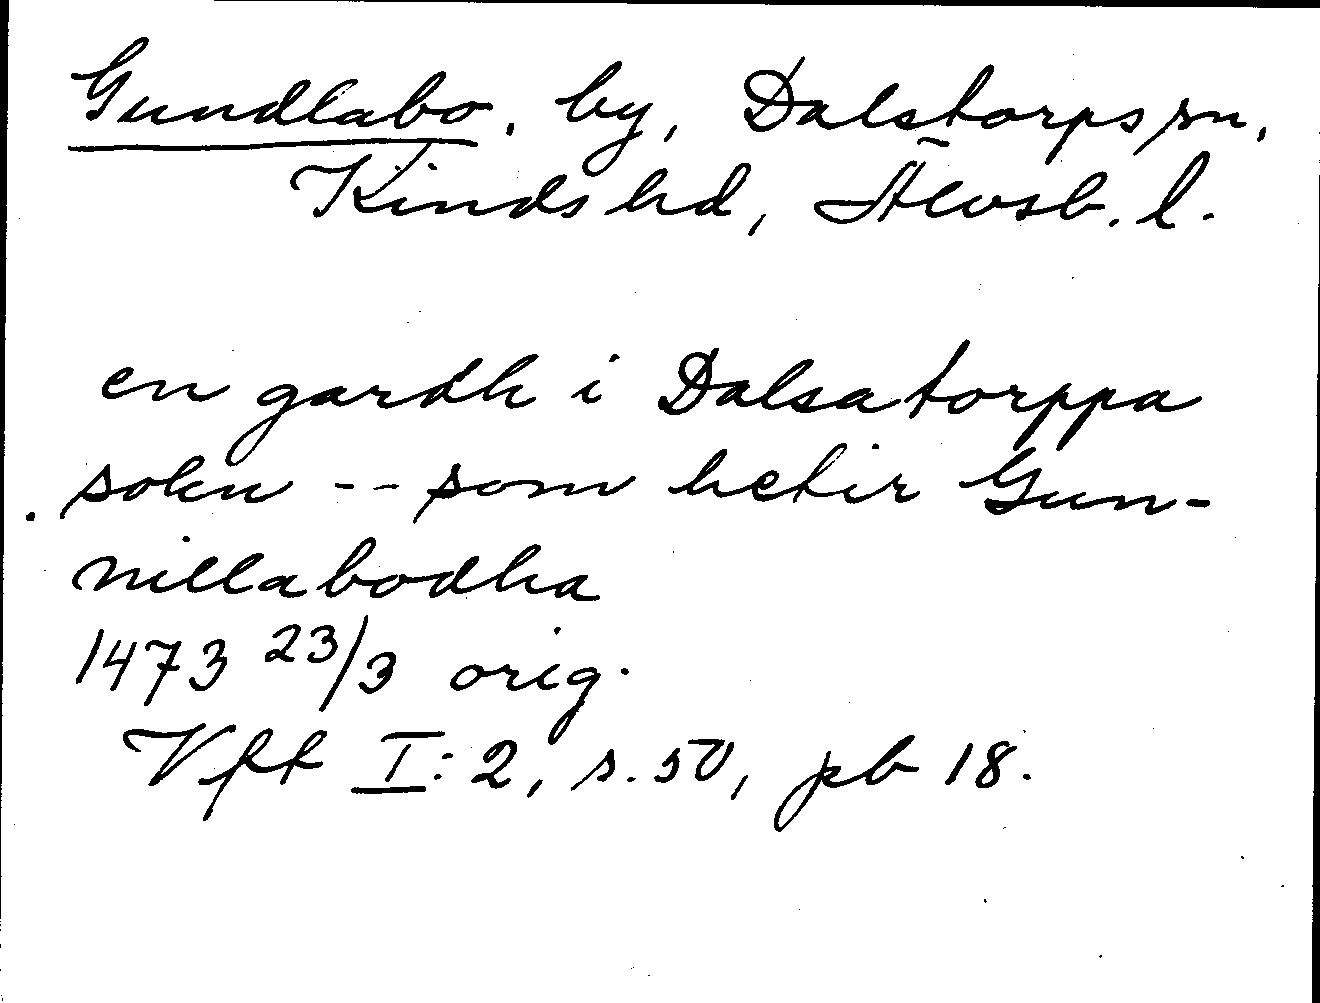 Gundlabo, by, Dalstorps sn,
Kinds hd, Älvsb. l.
en gardh i Dalsatorppa
sokn -- som hetir Gun-
nillabodha
1473 23/3 orig.
Vft I:2, s. 50, pb 18.